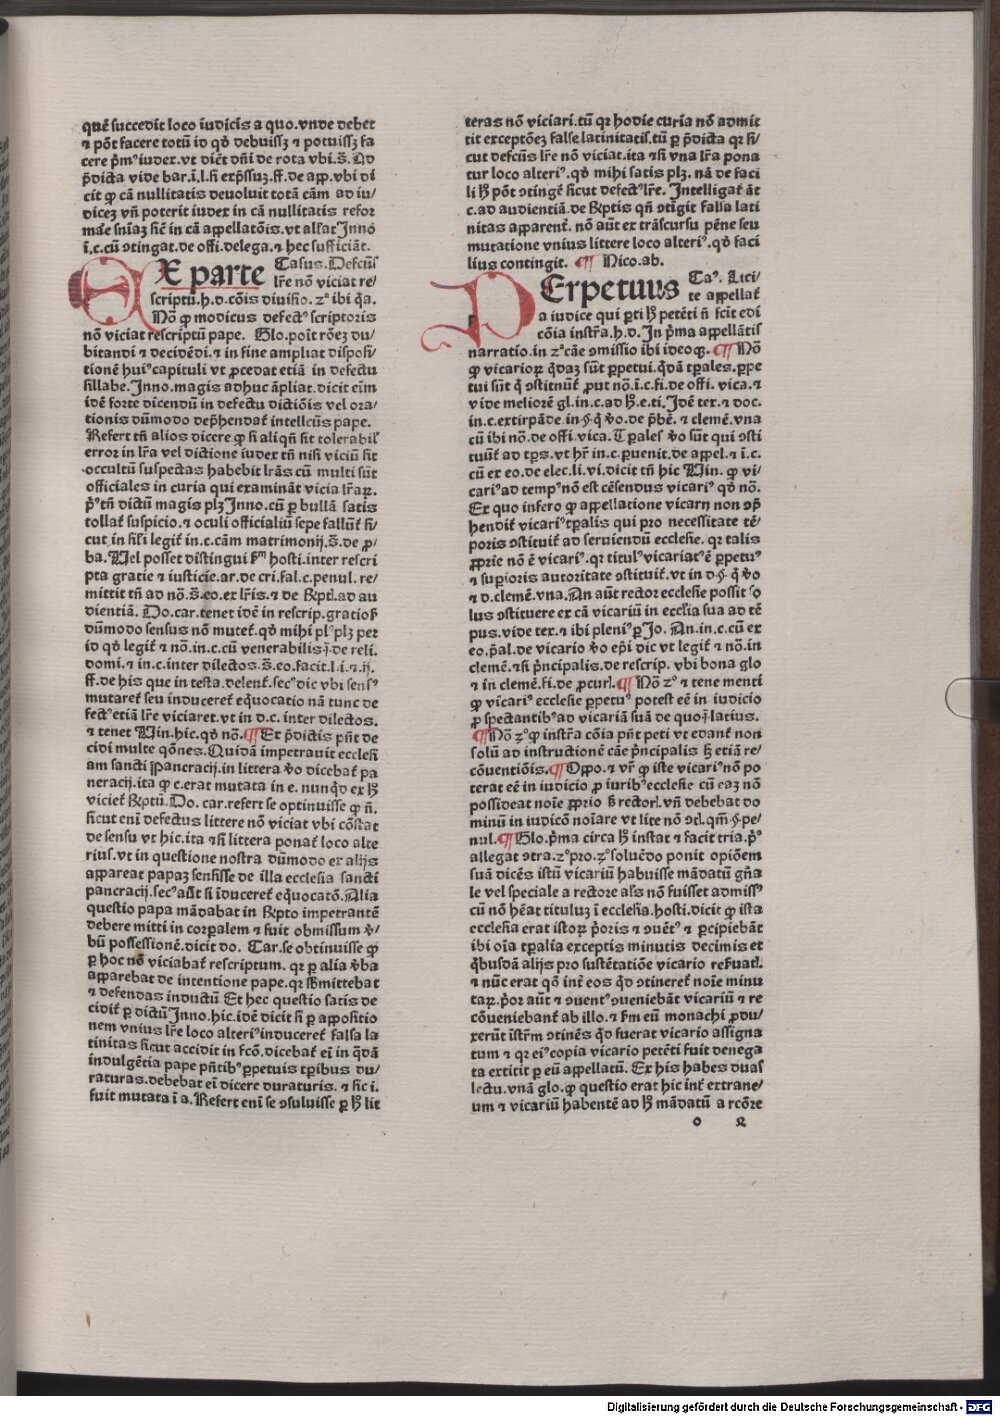 quē succedit loco iudicis a quo.vnde debet
⁊ pōt facere totū id qd̄ debuissꝫ ⁊ potuissꝫ fa
cere pͥmꝰ iudex.vt diēt dn̄i de rota vbi.s̄. Ad
p̄dicta vide bar.ī.l.si exp̄ssuꝫ.ff.de app.vbi di
cit ꝙ cā nullitatis deuoluit totā cām ad iu/
diceꝫ vn̄ poterit iudex in cā nullitatis refor
mare sniaꝫ sic̄ in cā appellatōis.vt allat̄ Inno
ī.c.cū ꝯtingat.de offi.delega.⁊ hec sufficiāt.
EX parte Casus.Defcūs
lr̄e nō viciat re/
scriptū.h.d.cōis diuisio. zᵒ ibi q̄a.
Nō ꝙ modicus defectꝰ scriptoris
nō viciat rescriptū pape. Glo.poīt rōeꝫ du/
bitandi ⁊ decidēdi.⁊ in fine ampliat disposi/
tionē huiꝰ capituli vt ꝓcedat etiā in defectu
sillabe.Inno.magis adhuc āpliat.dicit eīm
idē forte dicendū in defectu dictiōis vel ora/
tionis dūmodo dep̄hendat̄ intellcūs pape.
Refert tn̄ alios dicere ꝙ si aliqn̄ sit tolerabil'
error in lr̄a vel dictione iudex tn̄ nisi viciū sit
occultū suspectas habebit lr̄as cū multi sūt
officiales in curia qui examināt vicia lr̄aꝝ.
pͥꝰ tn̄ dictū magis plꝫ Inno.cū ꝑ bullā satis
tollat̄ suspicio.⁊ oculi officialiū sepe fallūt̄ si/
cut in sili legit̄ in.c.cām matrimonij.s̄.de ꝓ/
ba. Uel posset distingui sᵐ hosti.inter rescri
pta gratie ⁊ iusticie.ar.de cri.fal.c.penul. re/
mittit tn̄ ad nō.s̄.eo.ex lr̄is.⁊ de Rptl.ad au
dientiā. Do.car.tenet idē in rescrip.gratioſ
dūmodo sensus nō mutet̄.qd̄ mihi plꝰ plꝫ per
id qd̄ legit̄ ⁊ nō.in.c.cū venerabilis.j.de reli.
domi.⁊ in.c.inter dilectos.s̄.eo.facit.l.i.⁊.ij.
ff.de his que in testa.delent̄.secꝰ dic vbi sensꝰ
mutaret̄ seu induceret̄ eq̄uocatio nā tunc de
fectꝰ etiā lr̄e viciaret.vt in d.c. inter dilectos.
⁊ tenet Uin.hic.qd̄ nō.¶ Ex p̄dictis pn̄t de
cidi multe qōnes. Quidā impetrauit ecclesi
am sancti Pancracij.in littera v̓o dicebat̄ pa
neracij.ita ꝙ c.erat mutata in e. nunqd̄ ex hͦ
viciet̄ Rptū.Do. car.refert se optinuisse ꝙ n̄.
sicut enī defectus littere nō viciat vbi cōstat
de sensu vt hic.ita ⁊ si littera ponat̄ loco alte
rius.vt in questione nostra dūmodo ex alijs
appareat papaꝫ sensisse de illa ecclesia sancti
pancracij.secꝰ aūt si īduceret̄ eq̄uocatō. Alia
questio papa mādabat in Rpto impetrantē
debere mitti in corꝑalem ⁊ fuit obmissum v̓/
bū possessionē.dicit do. Car.se obtinuisse ꝙ
ꝑ hoc nō viciabat̄ rescriptum. qr ꝑ alia v̓ba
apparebat de intentione pape.qr sb̄mittebat
⁊ defendas inductū. Et hec questio satis de
cidit̄ ꝑ dictū Inno.hic.idē dicit si ꝑ appositio
nem vnius lr̄e loco alteriꝰ induceret̄ falsa la
tinitas sicut accidit in fcō.dicebat̄ eī in q̄dā
indulgētia pape pn̄tibꝰ ꝑpetuis tꝑibus du/
raturas.debebat eī dicere duraturis. ⁊ sic i.
fuit mutata ī a. Refert enī se ꝯsuluisse ꝑ hͦ lit
teras nō viciari.tū qr hodie curia nō admit
tit exceptōeꝫ false latinitatis.tū ꝑ p̄dicta qr si/
cut defcūs lr̄e nō viciat.ita ⁊ si vna lr̄a pona
tur loco alteriꝰ.qd̄ mihi satis plꝫ. nā de faci
li hͦ pōt ꝯtingē sicut defectꝰ lr̄e. Intelligat̄ āt
c.ad audientiā.de Rptis qn̄ ꝯtīgit falsa lati
nitas apparent̄. nō aūt ex trāscursu pēne seu
mutatione vnius littere loco alteriꝰ.qd̄ faci
lius contingit. ¶ Nico.ab.
PErpetuus Caꝰ. Lici/
te appellat̄
a iudice qui ꝑti hͦ petēti n̄ fcit edi
cōia instr̄a.h.d. In pͥma appellātis
narratio.in zᵃ cāe ꝯmissio ibi ideoqꝫ.¶ Nō
ꝙ vicarioꝝ q̄daꝫ sūt ꝑpetui.q̄dā tꝑales.ꝑpe
tui sūt q̄ ꝯstitnūt̄ ꝓut nō.ī.c.fi.de offi. vica.⁊
vide meliorē gl.in.c.ad hͦ.e.ti. Idē tex.⁊ doc.
in.c.extirpāde.in.§.q̄ v̓o.de p̄bē. ⁊ clemē.vna
cū ibi nō.de offi.vica. Tꝑales v̓o sūt qui ꝯsti
tuūt̄ ad tp̄s.vt hr̄ in.c.ꝑuenit.de appel.⁊ ī.c.
cū ex eo.de elec.li.vi.dicit tn̄ hic Uin. ꝙ vi/
cariꝰ ad tempꝰ nō est cēsendus vicariꝰ qd̄ nō.
Ex quo infero ꝙ appellatione vicarij non ꝯp̄
hendit̄ vicariꝰ tꝑalis qui pro necessitate tē/
poris ꝯstituit̄ ad seruiendū ecclesie. qr talis
ꝓprie nō ē vicariꝰ. qr titulꝰ vicariatꝰ ē ꝑpetuꝰ
⁊ suꝑioris autoritate ꝯstituit̄.vt in d.§. q̄ v̓o
⁊ d.clemē.vna. An aūt rector ecclesie possit so
lus ꝯstituere ex cā vicariū in ecclīa sua ad tē
pus.vide tex.⁊ ibi pleniꝰ ꝑ Jo. An.in.c.cū ex
eo.p̄al.de vicario v̓o ep̄i dic vt legit̄ ⁊ nō.in
clemē.⁊ si pͥncipalis.de rescrip. vbi bona glo
⁊ in clemē.fi.de ꝓcur.¶ Nō zᵒ ⁊ tene menti
ꝙ vicariꝰ ecclesie ꝑpetuꝰ potest eē in iudicio
ꝓ spectantibꝰ ad vicariā suā de quo.j.latius.
¶ Nō zᵒ ꝙ instr̄a cōia pn̄t peti vt edant̄ non
solū ad instructionē cāe pͥncipalis hꝫ etiā re/
cōuentiōis.¶ Oppo.⁊ vr̄ ꝙ iste vicariꝰ nō po
terat eē in iudicio ꝓ iuribꝰ ecclesie cū eaꝫ nō
possideat noīe ꝓprio s̄ rectorl. vn̄ debebat do
minū in iudicō noīare vt lite nō ꝯtl. qm̄.§.pe/
nul.¶ Glo.pͥma circa hͦ instat ⁊ facit tria.pͥꝰ
allegat ꝯtra.zᵒ pro.zᵒ soluēdo ponit opiōem
suā dicēs istū vicariū habuisse mādatū gn̄a
le vel speciale a rectore als nō fuisset admissꝰ
cū nō hēat tituluꝫ ī ecclesia.hosti.dicit ꝙ ista
ecclesia erat istoꝝ pͥoris ⁊ ꝯuētꝰ ⁊ ꝑcipiebāt
ibi oīa tꝑalia exceptis minutis decimis et
q̄busdā alijs pro sustētatiōe vicario reẜuatl.
⁊ nūc erat qō int̄ eos qd̄ ꝯtineret̄ noīe minu
taꝝ.pͥor aūt ⁊ ꝯuentꝰ ꝯueniebāt vicariū ⁊ re
cōueniebant̄ ab illo.⁊ sm̄ eū monachi ꝓdu/
xerūt īstr̄m ꝯtinēs qd̄ fuerat vicario assigna
tum ⁊ qr eiꝰ copia vicario petēti fuit denega
ta extitit ꝑ eū appellatū. Ex his habes duas
lectu.vnā glo.ꝙ questio erat hic int̄ extrane/
um ⁊ vicariū habentē ad hͦ mādatū a rcōre
o R
Digitalisierung gefördert durch die Deutsche Forschungsgemeinschaft - DFG